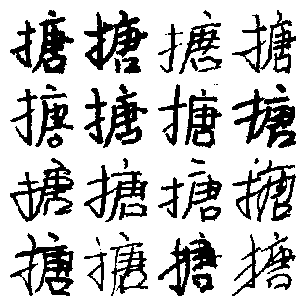 搪搪搪搪
搪搪搪搪
搪搪搪搪
搪搪搪搪